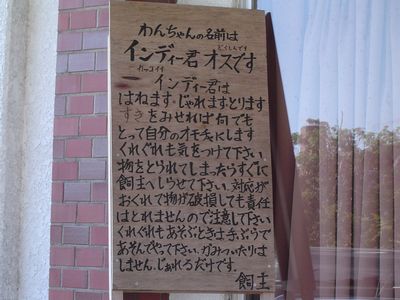 わんちゃんの名前は
どくしんです
インディー君 オスです
カッコイイ
インディー君は
はねます・じゃれます・とります
すきをみせれば何でも
とって自分のオモチャにします
くれぐれも気をつけて下さい
物をとられてしまったらすぐに
飼主へしらせて下さい。対応が
おくれて物が破損しても責任
はとれませんので注意して下さい
くれぐれもあそぶときは手ぶらで
あそんでやって下さい。かみついたりは
しません。じゃれるだけです。
飼主